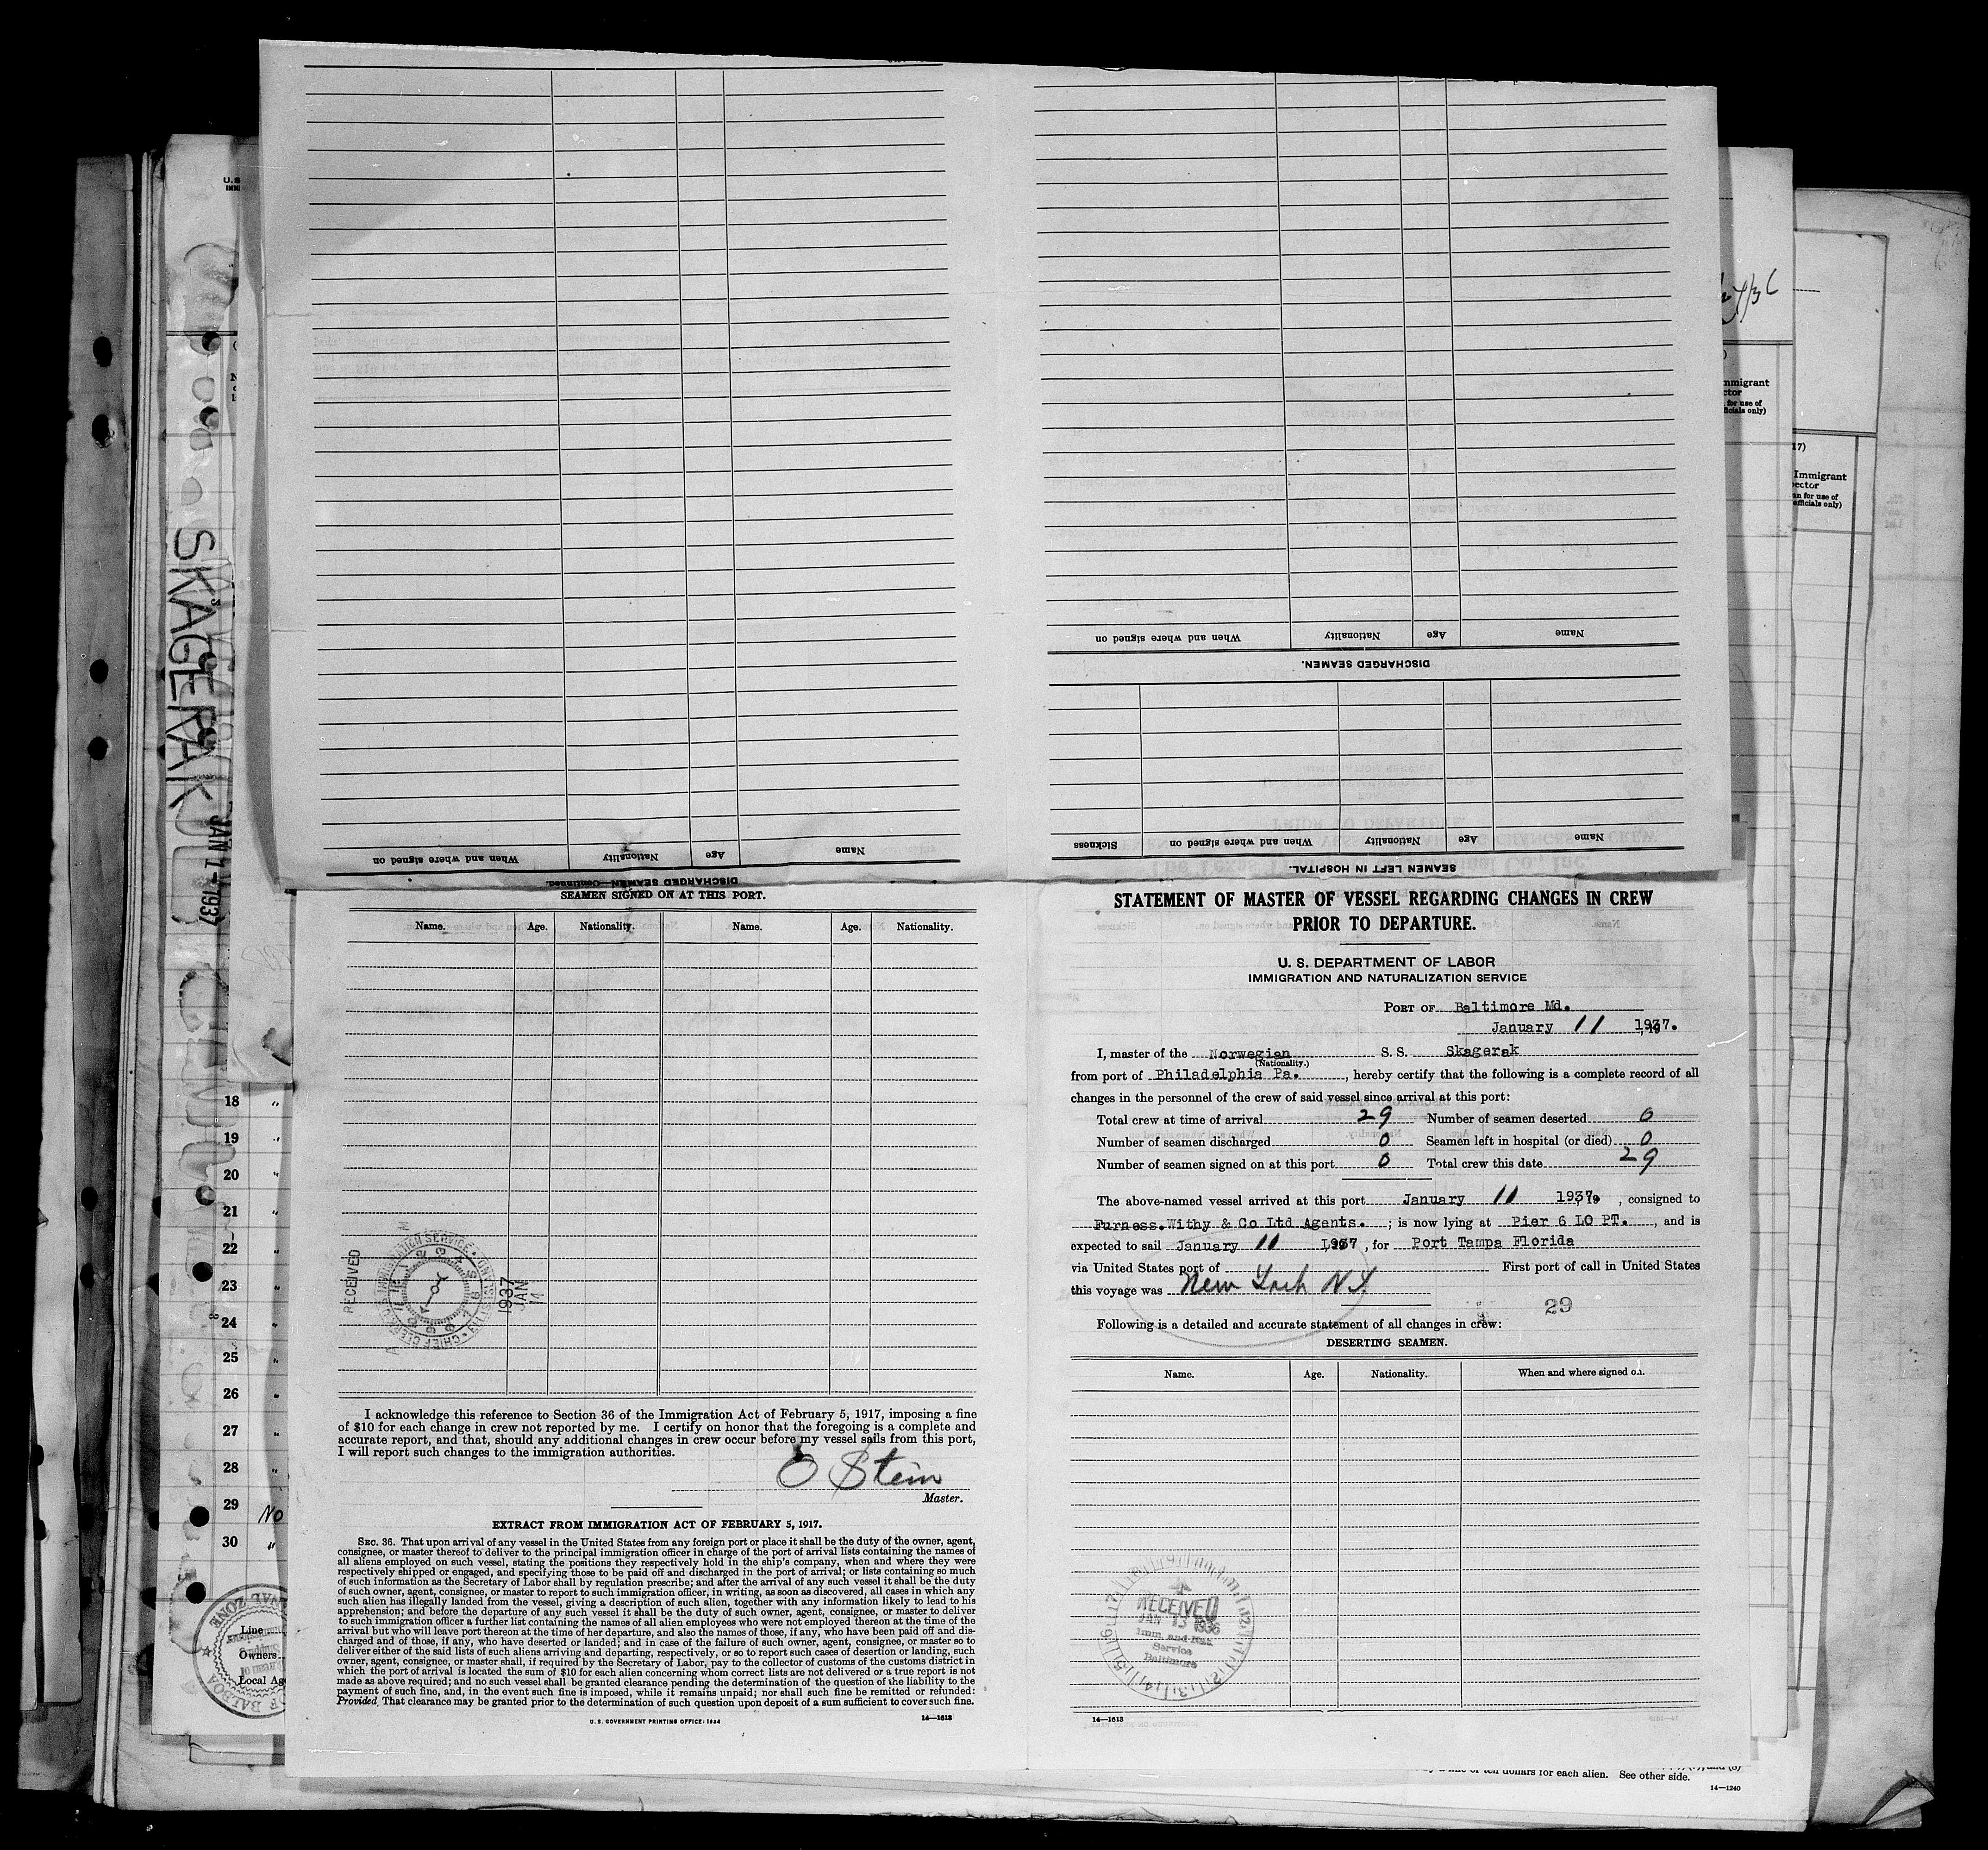 SKAGERAK
JAN 7-1937
When and where signed on
Nationality
Age
Name
DISCHARGED SEAMEN—Continued.
When and where signed on
Nationality
Age
Name
DISCHARGED SEAMEN.
Sickness
When and where signed on
Nationality
Age
Name
SEAMEN LEFT IN HOSPITAL.
SEAMEN SIGNED ON AT THIS PORT.
Name. Age. Nationality. Name. Age. Nationality.
RECEIVED
1937
JAN
I acknowledge this reference to Section 36 of the Immigration Act of February 5, 1917, imposing a fine
of $10 for each change in crew not reported by me. I certify on honor that the foregoing is a complete and
accurate report, and that, should any additional changes in crew occur before my vessel sails from this port,
I will report such changes to the immigration authorities.
O Stein
Master.
EXTRACT FROM IMMIGRATION ACT OF FEBRUARY 5, 1917.
SEC. 36. That upon arrival of any vessel in the United States from any foreign port or place it shall be the duty of the owner, agent,
consignee, or master thereof to deliver to the principal immigration officer in charge of the port of arrival lists containing the names of
all aliens employed on such vessel, stating the positions they respectively hold in the ship's company, when and where they were
respectively shipped or engaged, and specifying those to be paid off and discharged in the port of arrival; or lists containing so much
of such information as the Secretary of Labor shall by regulation prescribe; and after the arrival of any such vessel it shall be the duty
of such owner, agent, consignee, or master to report to such immigration officer, in writing, as soon as discovered, all cases in which any
such alien has illegally landed from the vessel, giving a description of such alien, together with any information likely to lead to his
apprehension; and before the departure of any such vessel it shall be the duty of such owner, agent, consignee, or master to deliver
to such immigration officer a further list containing the names of all alien employees who were not employed thereon at the time of the
arrival but who will leave port thereon at the time of her departure, and also the names of those, if any, who have been paid off and dis-
charged and of those, if any, who have deserted or landed; and in case of the failure of such owner, agent, consignee, or master so to
deliver either of the said lists of such aliens arriving and departing, respectively, or so to report such cases of desertion or landing, such
owner, agent, consignee, or master shall, if required by the Secretary of Labor, pay to the collector of customs of the customs district in
which the port of arrival is located the sum of $10 for each alien concerning whom correct lists are not delivered or a true report is not
made as above required; and no such vessel shall be granted clearance pending the determination of the question of the liability to the
payment of such fine, and, in the event such fine is imposed, while it remains unpaid; nor shall such fine be remitted or refunded:
Provided, That clearance may be granted prior to the determination of such question upon deposit of a sum sufficient to cover such fine.
U. S. GOVERNMENT PRINTING OFFICE: 1934
14—1613
STATEMENT OF MASTER OF VESSEL REGARDING CHANGES IN CREW
PRIOR TO DEPARTURE.
U. S. DEPARTMENT OF LABOR
IMMIGRATION AND NATURALIZATION SERVICE
PORT OF Baltimore Md.
January 11 1937.
I, master of the Norwegian S. S. Skagerak
(Nationality.)
from port of Philadelphia Pa., hereby certify that the following is a complete record of all
changes in the personnel of the crew of said vessel since arrival at this port:
Total crew at time of arrival 29 Number of seamen deserted 0
Number of seamen discharged 0 Seamen left in hospital (or died) 0
Number of seamen signed on at this port 0 Total crew this date 29
The above-named vessel arrived at this port January 11 1937, consigned to
Furness.Withy & Co Ltd Agents. ; is now lying at Pier 6 LO PT. , and is
expected to sail January 11 1937, for Port Tampa Florida
via United States port of First port of call in United States
this voyage was New York N.Y.
29
Following is a detailed and accurate statement of all changes in crew:
DESERTING SEAMEN.
Name. Age. Nationality. When and where signed on.
RECEIVED
JAN 13 1936
Imm. and Nat.
Service
Baltimore
14—1613
18
19
20
21
22
23
24
25
26
27
28
29 No
30
Line
Owners
Local Ag
mmigrant
ctor
for use of
ficials only)
17)
Immigrant
ector
an for use of
officials only)
of ten dollars for each alien. See other side.
14—1240